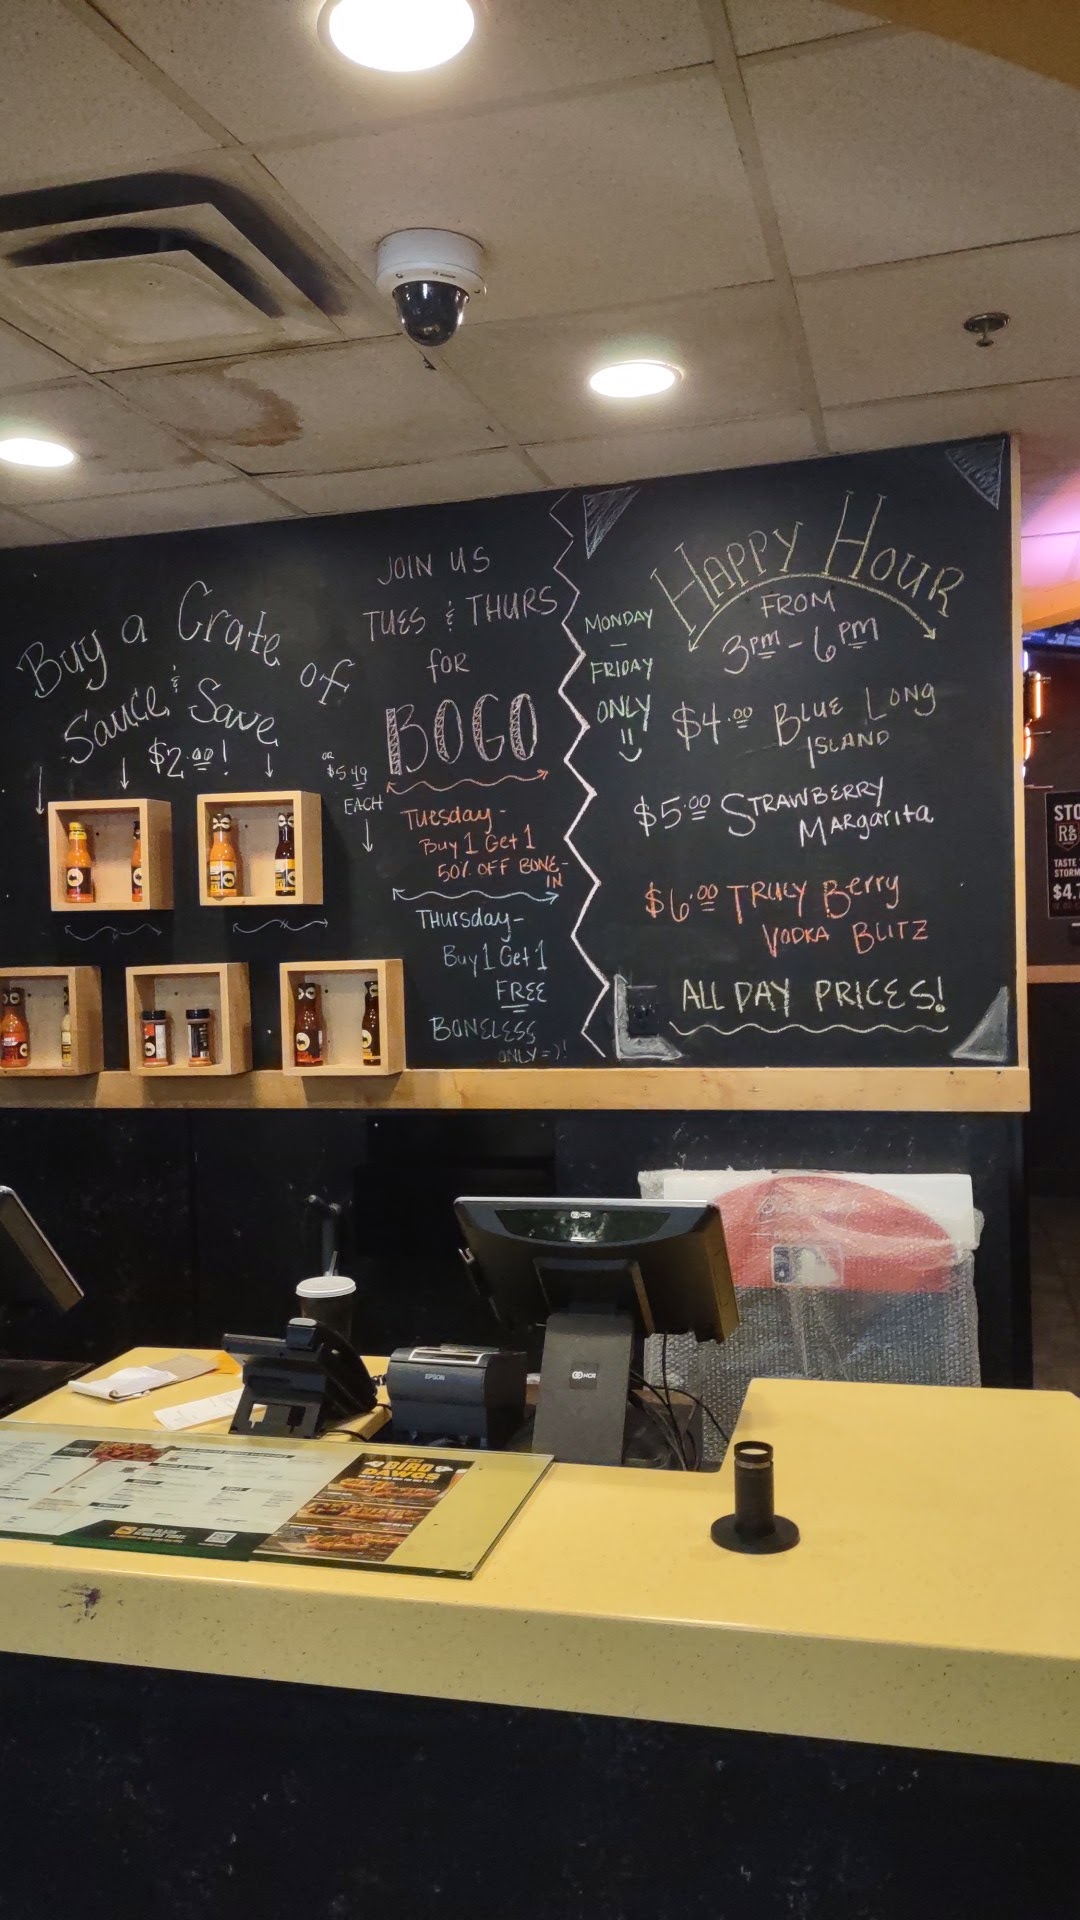 Buy a Crate of
Sauce & Save
$2.00!
or
$5.49
EACH
JOIN US
TUES & THURS
for
BOGO
Tuesday-
Buy 1 Get 1
50% OFF BONE-
IN
Thursday-
Buy 1 Get 1
FREE
BONELESS
ONLY =)!
MONDAY
–
FRIDAY
ONLY
HAPPY HOUR
FROM
3PM - 6PM
$4.00 BLUE LONG
ISLAND
$5.00 STRAWBERRY
MARgarita
$6.00 TRULY BErry
VODKA BLITZ
ALL DAY PRICES!
R&B
TASTE
EPSON
NCR
BIRD
DAWGS